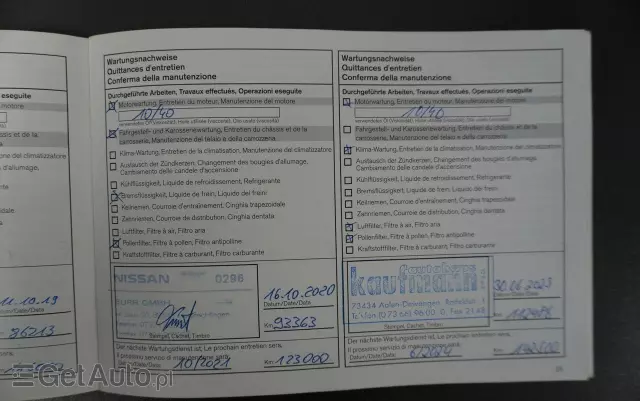 eseguite
motore
âssis et de la
climatizzatore
d'allumage,
11.10.19
86213
Wartungsnachweise
Quittances d'entretien
Conferma della manutenzione
Durchgeführte Arbeiten, Travaux effectués, Operazioni eseguite
Motorwartung, Entretien du moteur, Manutenzione del motore
10/40
Fahrgestell- und Karosseriewartung, Entretien du châssis et de la
carrosserie, Manutenzione del telaio e della carrozzeria
Klima-Wartung, Entretien de la climatisation, Manutenzione del climatizzatore
Austausch der Zündkerzen, Changement des bougies d'allumage,
Cambiamento delle candele d'accensione
Kühlflüssigkeit, Liquide de refroidissement, Refrigerante
Bremsflüssigkeit, Liquide de frein, Liquido dei freini
Keilriemen, Courroie d'entraînement, Cinghia trapezoidale
Zahnriemen, Courroie de distribution, Cinghia dentata
Luftfilter, Filtre à air, Filtro aria
Pollenfilter, Filtre à pollen, Filtro antipolline
Kraftstofffilter, Filtre à carburant, Filtro carburante
NISSAN 0296
Stempel, Cachet, Timbro
16.10.2020
Datum/Date/Data
Km 93363
Der nächste Wartungsdienst ist, Le prochain entretien sera,
Il prossimo servizio di manutenzione sarà:
10/2021
Km 123000
Wartungsnachweise
Quittances d'entretien
Conferma della manutenzione
Durchgeführte Arbeiten, Travaux effectués, Operazioni eseguite
Motorwartung, Entretien du moteur, Manutenzione del motore
10/40
Fahrgestell- und Karosseriewartung, Entretien du châssis et de la
carrosserie, Manutenzione del telaio e della carrozzeria
Klima-Wartung, Entretien de la climatisation, Manutenzione del climatizzatore
Austausch der Zündkerzen, Changement des bougies d'allumage,
Cambiamento delle candele d'accensione
Kühlflüssigkeit, Liquide de refroidissement, Refrigerante
Bremsflüssigkeit, Liquide de frein, Liquido dei freini
Keilriemen, Courroie d'entraînement, Cinghia trapezoidale
Zahnriemen, Courroie de distribution, Cinghia dentata
Luftfilter, Filtre à air, Filtro aria
Pollenfilter, Filtre à pollen, Filtro antipolline
Kraftstofffilter, Filtre à carburant, Filtro carburante
autohaus
kaufmann
73434 Aalen-Dewangen
Telefon (0 73 66) 96 00 0
Stempel, Cachet, Timbro
30.06.2023
Datum/Date/Data
Km
Der nächste Wartungsdienst ist, Le prochain entretien sera,
Il prossimo servizio di manutenzione sarà:
Datum/Date/Data 6/2024
Km
GetAuto.pl